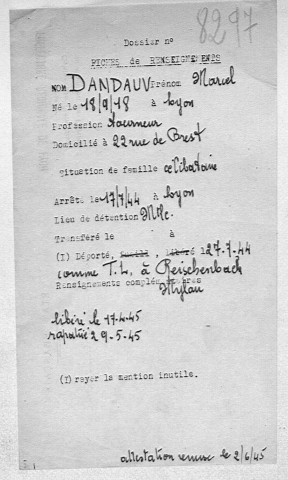 8297
Dossier n°
FICHES de RENSEIGNEMENTS
NOM DANDAUV Prénom Marcel
Né le 18/9/18 à Lyon
Profession tourneur
Domicilié à 22 rue de Brest
Situation de famille célibataire
Arrêté le 17/7/44 à Lyon
Lieu de détention Mtlc.
Transféré le à
(I) Déporté, fusillé, Libéré le 27-7-44
comme T.L. à Reischenbach
Renseignements complémentaires
Mylau
libéré le 17-4-45
rapatrié 29-5-45
(I) rayer la mention inutile.
attestation remise le 2/6/45